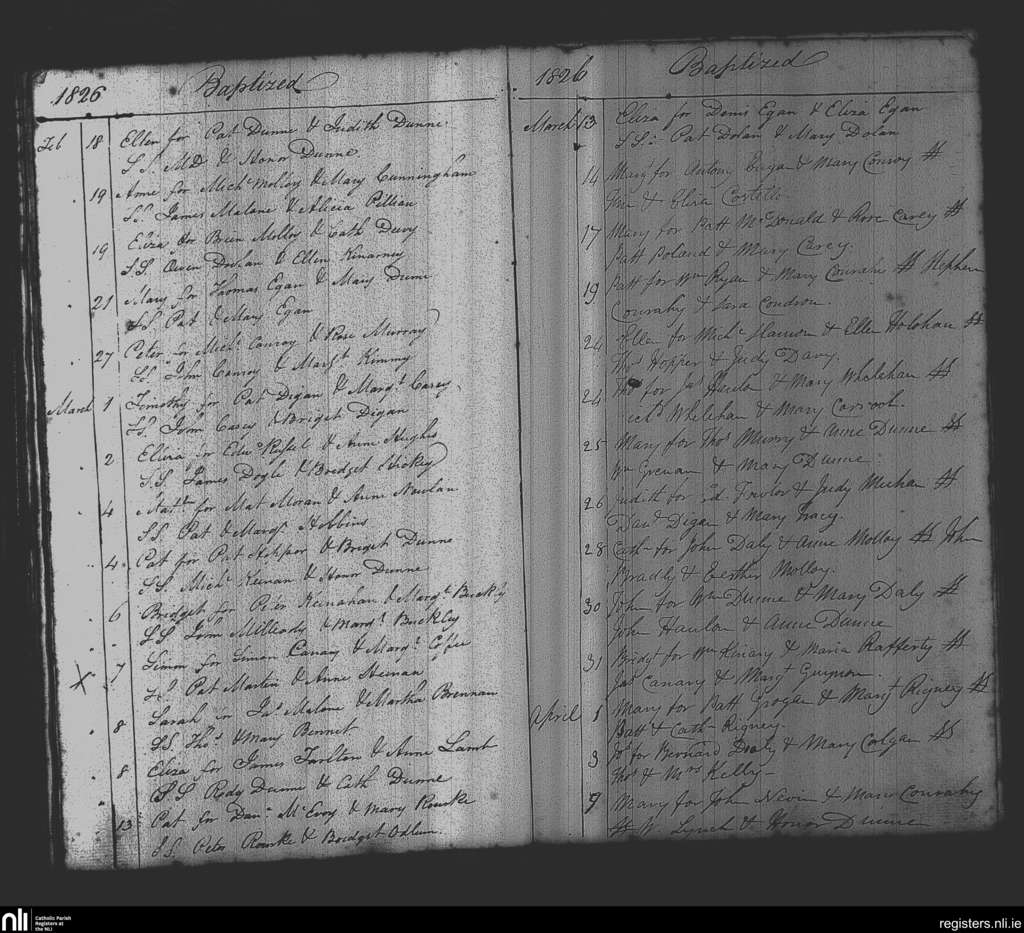 1826 Baptized
Feb 18 Ellen for Pat Dunne & Judith Dunne
S.S. & Honor Dunne
19 Anne for Michl Molloy & Mary Cunningham
Ss. James Malone & Alicia
19 Eliza for Brien Molloy & Cath
S.S. Owen & Ellen
21 Mary for Thomas Egan & Mary Dunne
SS. Pat & Mary Egan
27 Peter for Michl Conroy & Rose Murray
SS. John Conroy & Margt
March 1 Timothy for Pat Digan & Margt. Carey
SS. John Casey & Briget Digan
2 for & Anne Hughes
S.S. James Doyle & Bredget Hickey
4 for Mat Moran & Anne Nowlan
SS. Pat & Margt Hobbins
4 Pat for Pat Hopper & Briget Dunne
S.S. Michl Keenan & Honor Dunne
6 Bridget for Peter & Margt. Buckly
S.S. John & Margt. Buckley
7 Simon for Simon Canary & Margt.
SS. Pat Martin & Anne
8 Sarah for Jas Malone & Martha Brennan
SS. Thos. & Mary Bennet
8 Eliza for James Tarlton & Anne Lamb
S.S. Rody Dunne & Cath Dunne
13 Pat for Danl McEvoy & Mary Rourke
S.S. Peter Rourke & Bridget Odlum
1826 Baptized
March 13 Eliza for Denis Egan & Eliza Egan
S.S. Pat Dolan & Mary Dolan
14 for Antony & Mary Conroy SS
& Eliza Costello
17 Mary for Patt McDonald & Rose Carey SS
Patt Boland & Mary Carey.
19 Patt for Wm Ryan & Mary SS Stephen
& Sara Condron.
24 Ellen for Michl & Ellen Holohan SS
Thos Hopper & Judy Davy.
24 Thos for Jas & Mary Whelehan SS
Whelehan & Mary
25 Mary for Thos Murry & Anne Dunne SS
Wm Grenan & Mary Dunne
26 Judith for & Judy Meehan SS
Danl Digan & Mary Tracy.
28 Cath for John Daly & Anne Molloy SS John
Bradly & Esther Molloy.
30 John for Wm Dunne & Mary Daly SS
John Hanlon & Anne Dunne
31 Bridgt for Wm & Maria Rafferty SS
Jas Canary & Margt Guynon.
April 1 Mary for Patt Grogan & Margt Rigney SS
Patt & Cath Rigney.
3 for Bernard Daly & Mary Colgan SS
Thos & Mrs Kelly
9 Mary for John Nevin & Mary
SS W. Lynch & Honor Dunne
nli Catholic Parish
Registers at
the NLI
registers.nli.ie